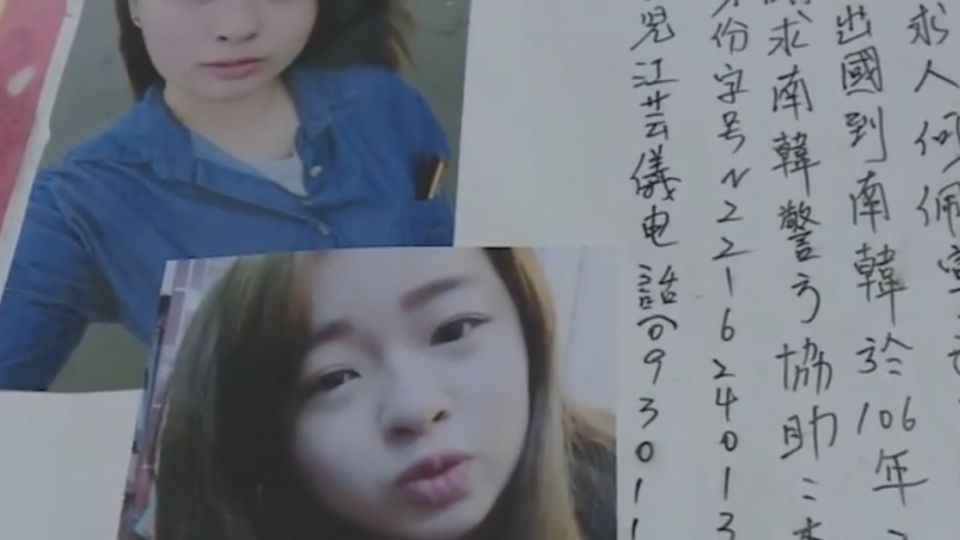 求人何佩
出國到南韓於106年
求南韓警方協助
份字号N221624013
兒江芸儀电話(09301